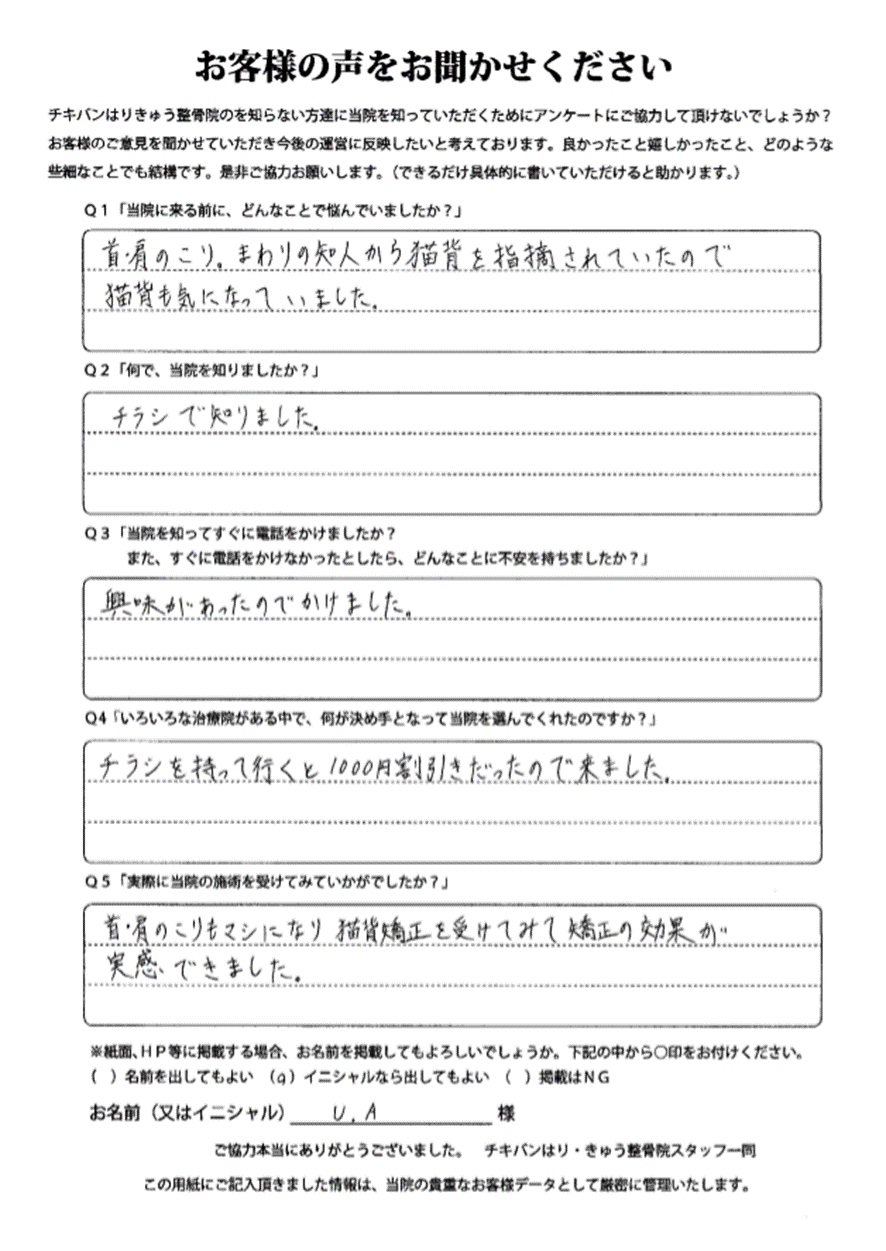 お客様の声をお聞かせください
チキバンはりきゅう整骨院のを知らない方達に当院を知っていただくためにアンケートにご協力して頂けないでしょうか？
お客様のご意見を聞かせていただき今後の運営に反映したいと考えております。良かったこと嬉しかったこと、どのような
些細なことでも結構です。是非ご協力お願いします。（できるだけ具体的に書いていただけると助かります。）
Q１「当院に来る前に、どんなことで悩んでいましたか？」
首・肩のこり。まわりの知人から猫背を指摘されていたので
猫背も気になっていました。
Q２「何で、当院を知りましたか？」
チラシで知りました。
Q３「当院を知ってすぐに電話をかけましたか？
また、すぐに電話をかけなかったとしたら、どんなことに不安を持ちましたか？」
興味があったのでかけました。
Q4「いろいろな治療院がある中で、何が決め手となって当院を選んでくれたのですか？」
チラシを持って行くと1000円割引きだったので来ました。
Q５「実際に当院の施術を受けてみていかがでしたか？」
首・肩のこりもマシになり猫背矯正を受けてみて矯正の効果が
実感できました。
※紙面、ＨＰ等に掲載する場合、お名前を掲載してもよろしいでしょうか。下記の中から○印をお付けください。
（　）名前を出してもよい　（○）イニシャルなら出してもよい　（　）掲載はＮＧ
お名前（又はイニシャル） U.A 様
ご協力本当にありがとうございました。　チキバンはり・きゅう整骨院スタッフ一同
この用紙にご記入頂きました情報は、当院の貴重なお客様データとして厳密に管理いたします。